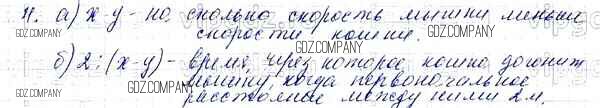 4. а) x-y - на сколько скорость мышки меньше
скорости кошки.
GDZ.COMPANY
GDZ.COMPANY
GDZ.COMPANY
б) 2:(x-y) - время, через которое кошка догонит
мышку, когда первоначальное
расстояние между ними 2м.
GDZ.COMPANY
GDZ.COMPANY
GDZ.COMPANY